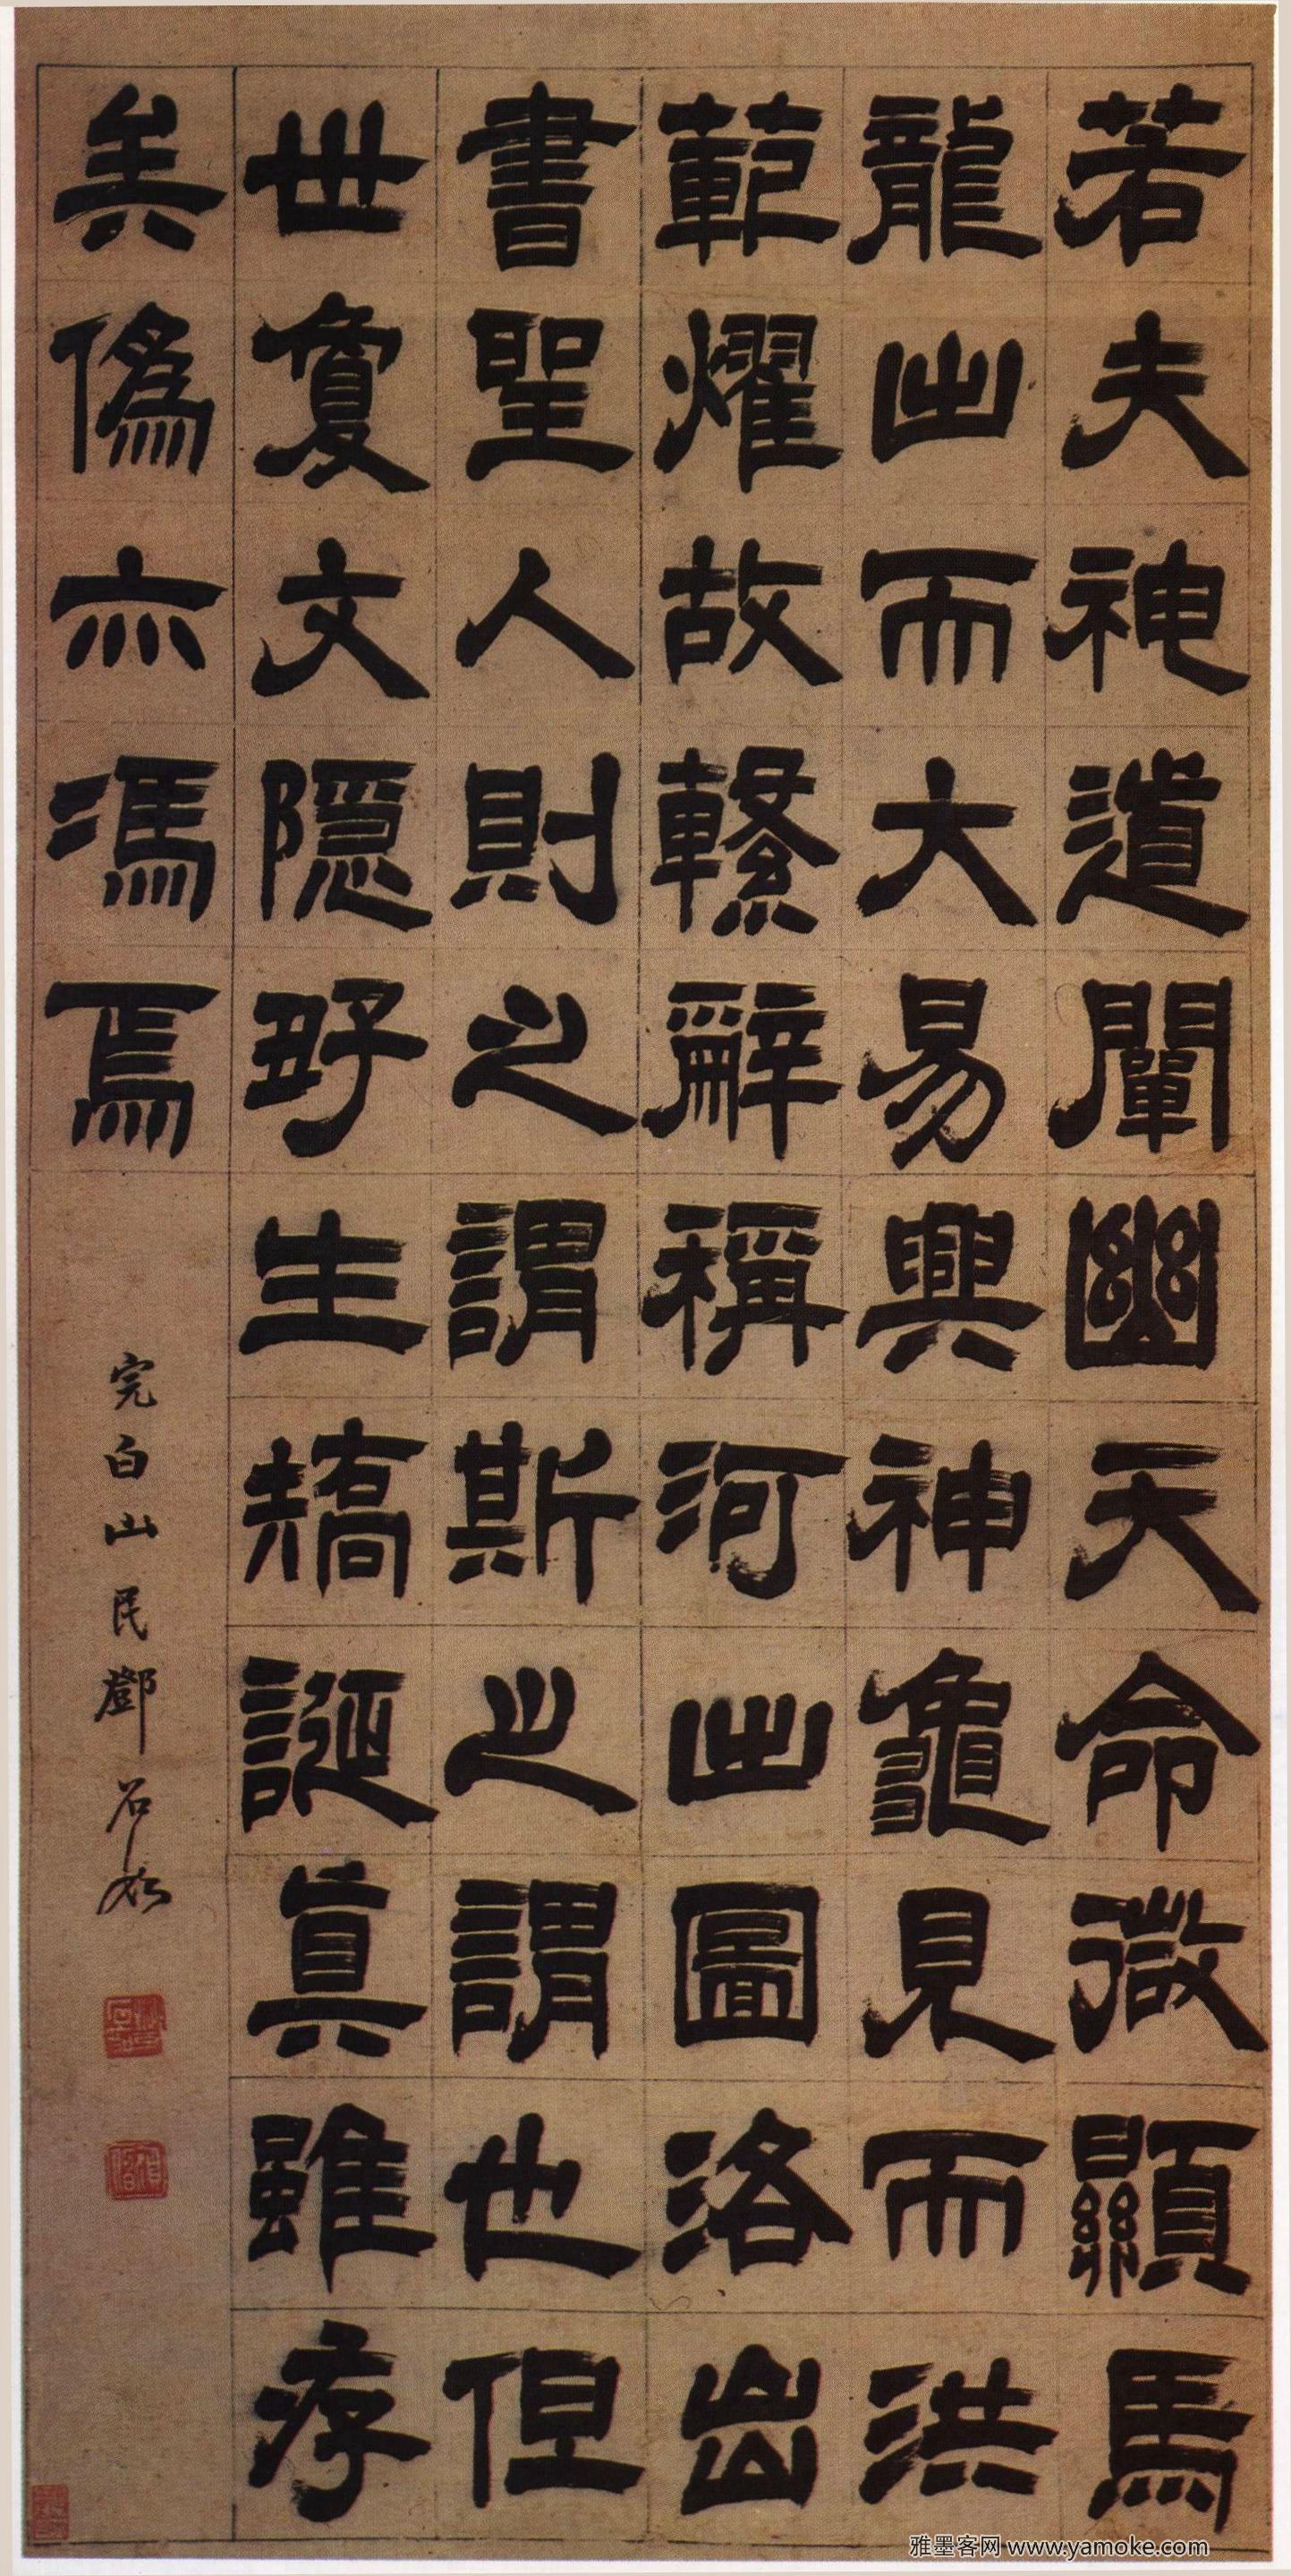 若夫神道闡幽天命微顯馬
龍出而大易興神龜見而洪
範燿故繫辭稱河出圖洛出
書聖人則之謂斯之謂也但
世夐文隱好生矯誕真雖存
矣僞亦馮焉
完白山民鄧石如
雅墨客网 www.yamoke.com